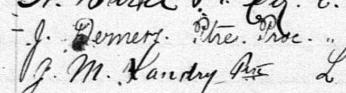 J. Demers. Ptre. Proc. "
J. M. Landry Ptre L